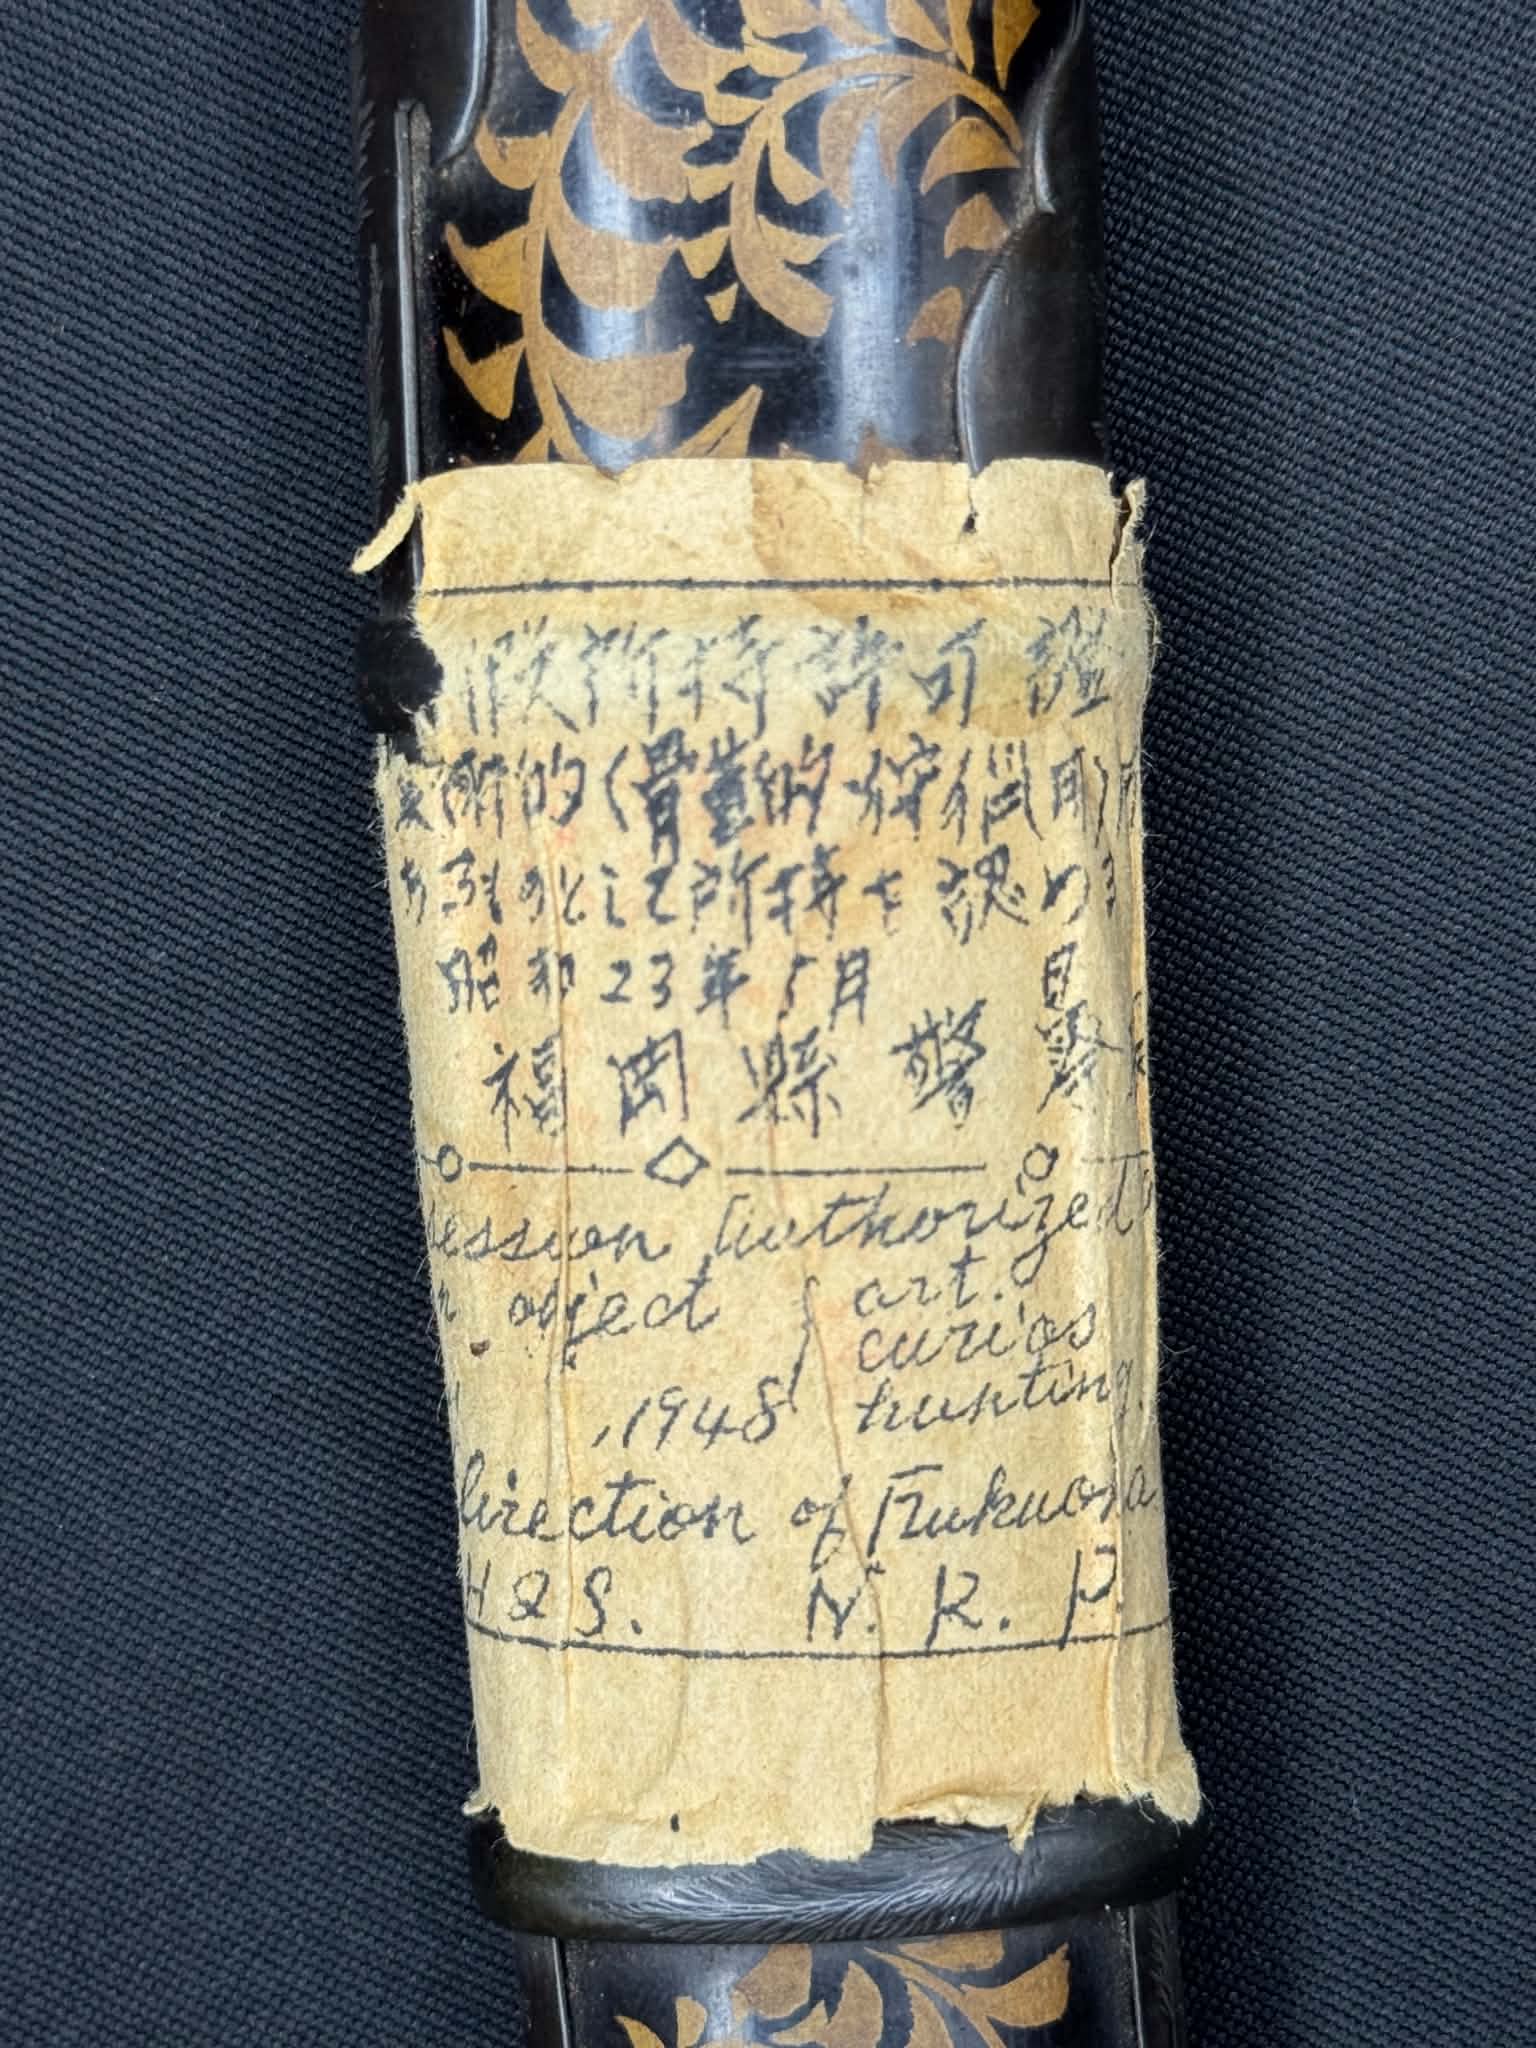 假所持許可證
的(骨董的狩猟用)
ものとして所持を認め
昭和23年5月 日
福岡縣警察
session authorized
object art.
curios
,1948 hunting.
direction of Fukuoka
HQS. N. R. P.